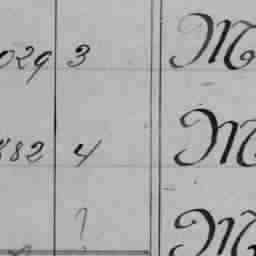 029 3 M
82 4 M
? M